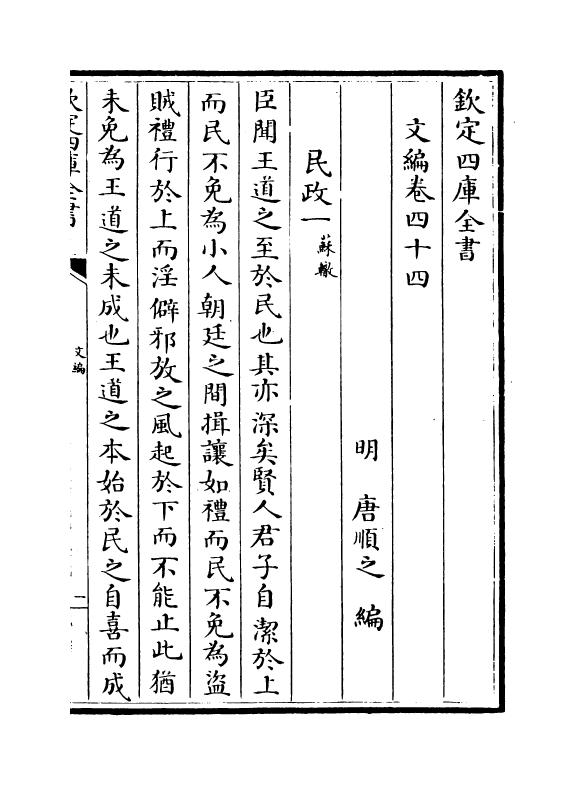 欽定四庫全書
文編卷四十四
明 唐順之 編
民政一 蘇轍
臣聞王道之至於民也其亦深矣賢人君子自潔於上
而民不免為小人朝廷之間揖讓如禮而民不免為盜
賊禮行於上而淫僻邪放之風起於下而不能止此猶
未免為王道之未成也王道之本始於民之自喜而成
欽定四庫全書
文編